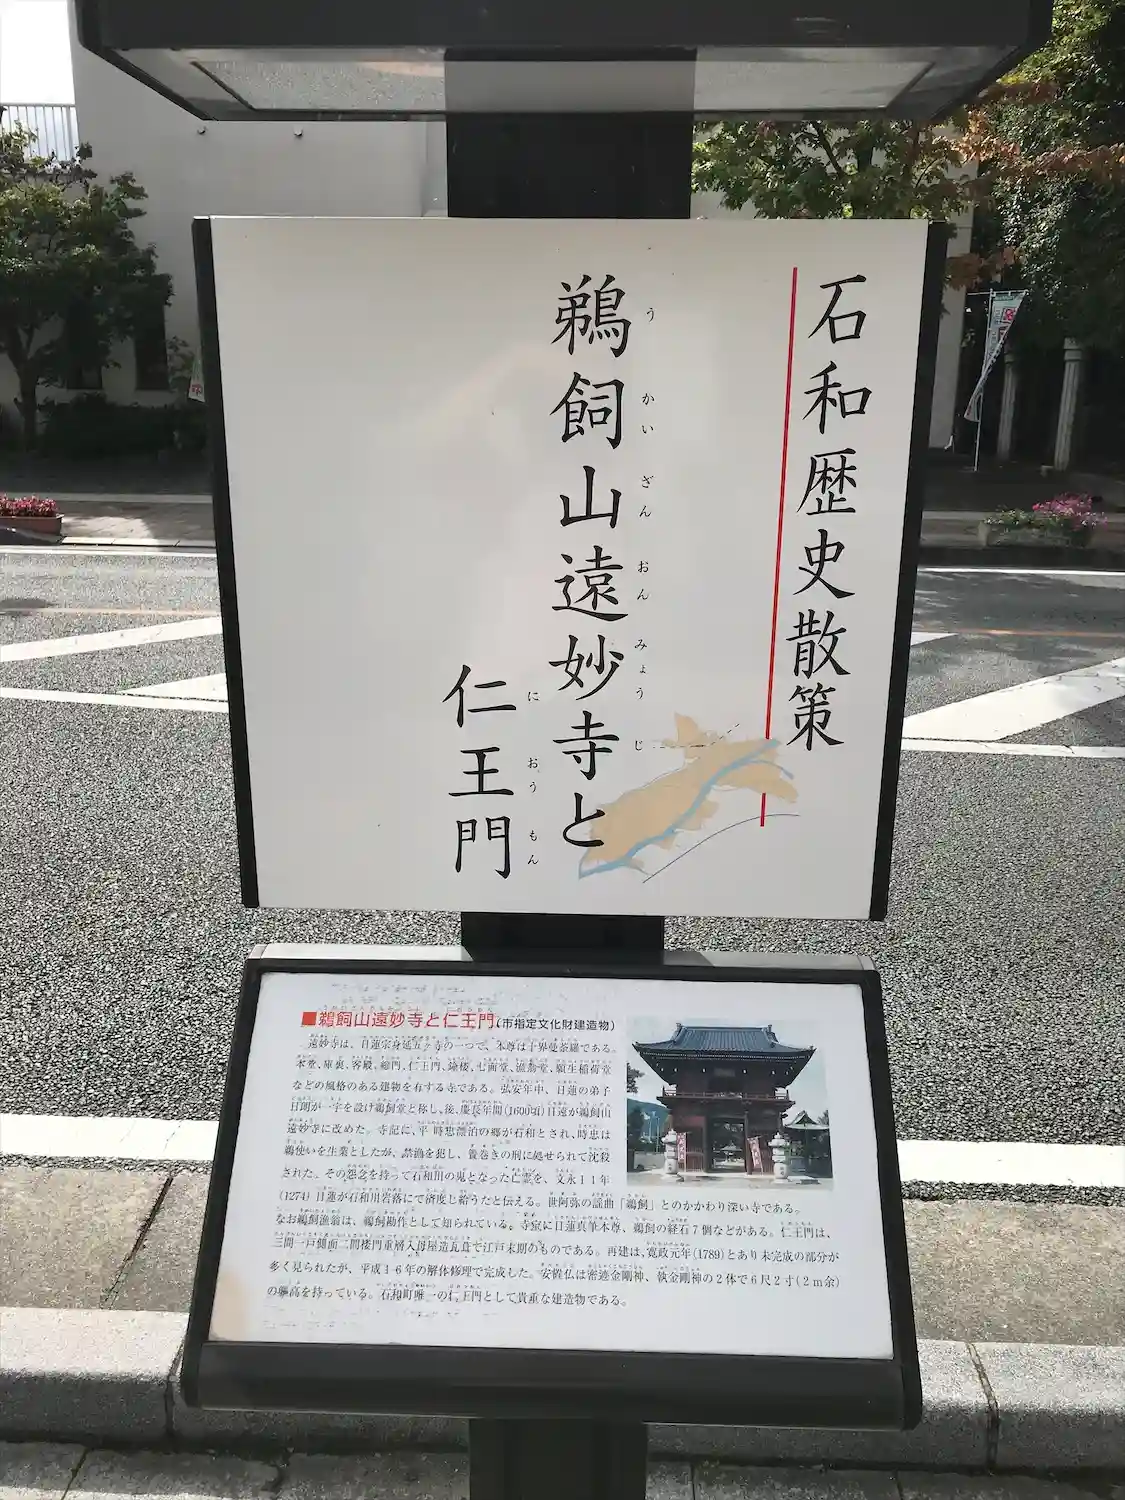 石和歴史散策
鵜飼山遠妙寺と
う かい ざん おん みょう じ
仁王門
に おう もん
■鵜飼山遠妙寺と仁王門(市指定文化財建造物)
遠妙寺は、日蓮宗身延五ヶ寺の一つで、本尊は十界曼荼羅である。
本堂、庫裏、客殿、総門、仁王門、鐘楼、七面堂、漁翁堂、願生稲荷堂
などの風格のある建物を有する寺である。弘安年中、日蓮の弟子
日朗が一宇を設け鵜飼堂と称し、後、慶長年間(1600頃)日遠が鵜飼山
遠妙寺に改めた。寺記に、平時忠漂泊の郷が石和とされ、時忠は
鵜使いを生業としたが、禁漁を犯し、簀巻きの刑に処せられて沈殺
された。その怨念を持って石和川の鬼となった亡霊を、文永11年
(1274)日蓮が石和川岩落にて済度し給うたと伝える。世阿弥の謡曲「鵜飼」とのかかわり深い寺である。
なお鵜飼漁翁は、鵜飼勘作として知られている。寺宝に日蓮真筆本尊、鵜飼の経石7個などがある。仁王門は、
三間一戸側面二間楼門重層入母屋造瓦葺で江戸末期のものである。再建は、寛政元年(1789)とあり未完成の部分が
多く見られたが、平成16年の解体修理で完成した。安置仏は密迹金剛神、執金剛神の2体で6尺2寸(2m余)
の像高を持っている。石和町唯一の仁王門として貴重な建造物である。